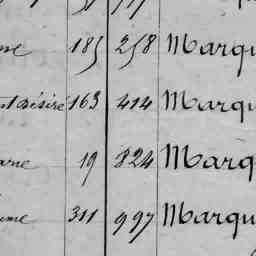 185 258 Marqu
Désiré 163 414 Marqu
19 824 Marq
311 997 Marqu